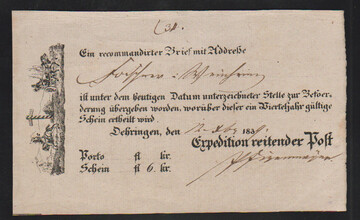 Ein recommandirter Brief mit Addreße
ist unter dem heutigen Datum unterzeichneter Stelle zur Befor-
derung übergeben worden, worüber dieser ein Vierteljahr gültige
Schein ertheilt wird.
Oehringen, den 183
Expedition reitender Post
Porto fl kr.
Schein fl 6. kr.